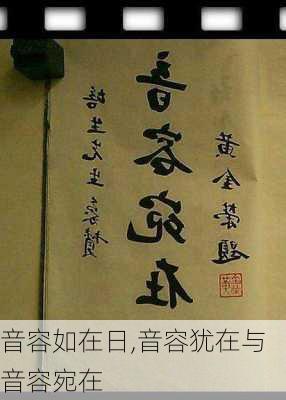 培生先生象贊
音容宛在
黃金榮題
音容如在日,音容犹在与
音容宛在